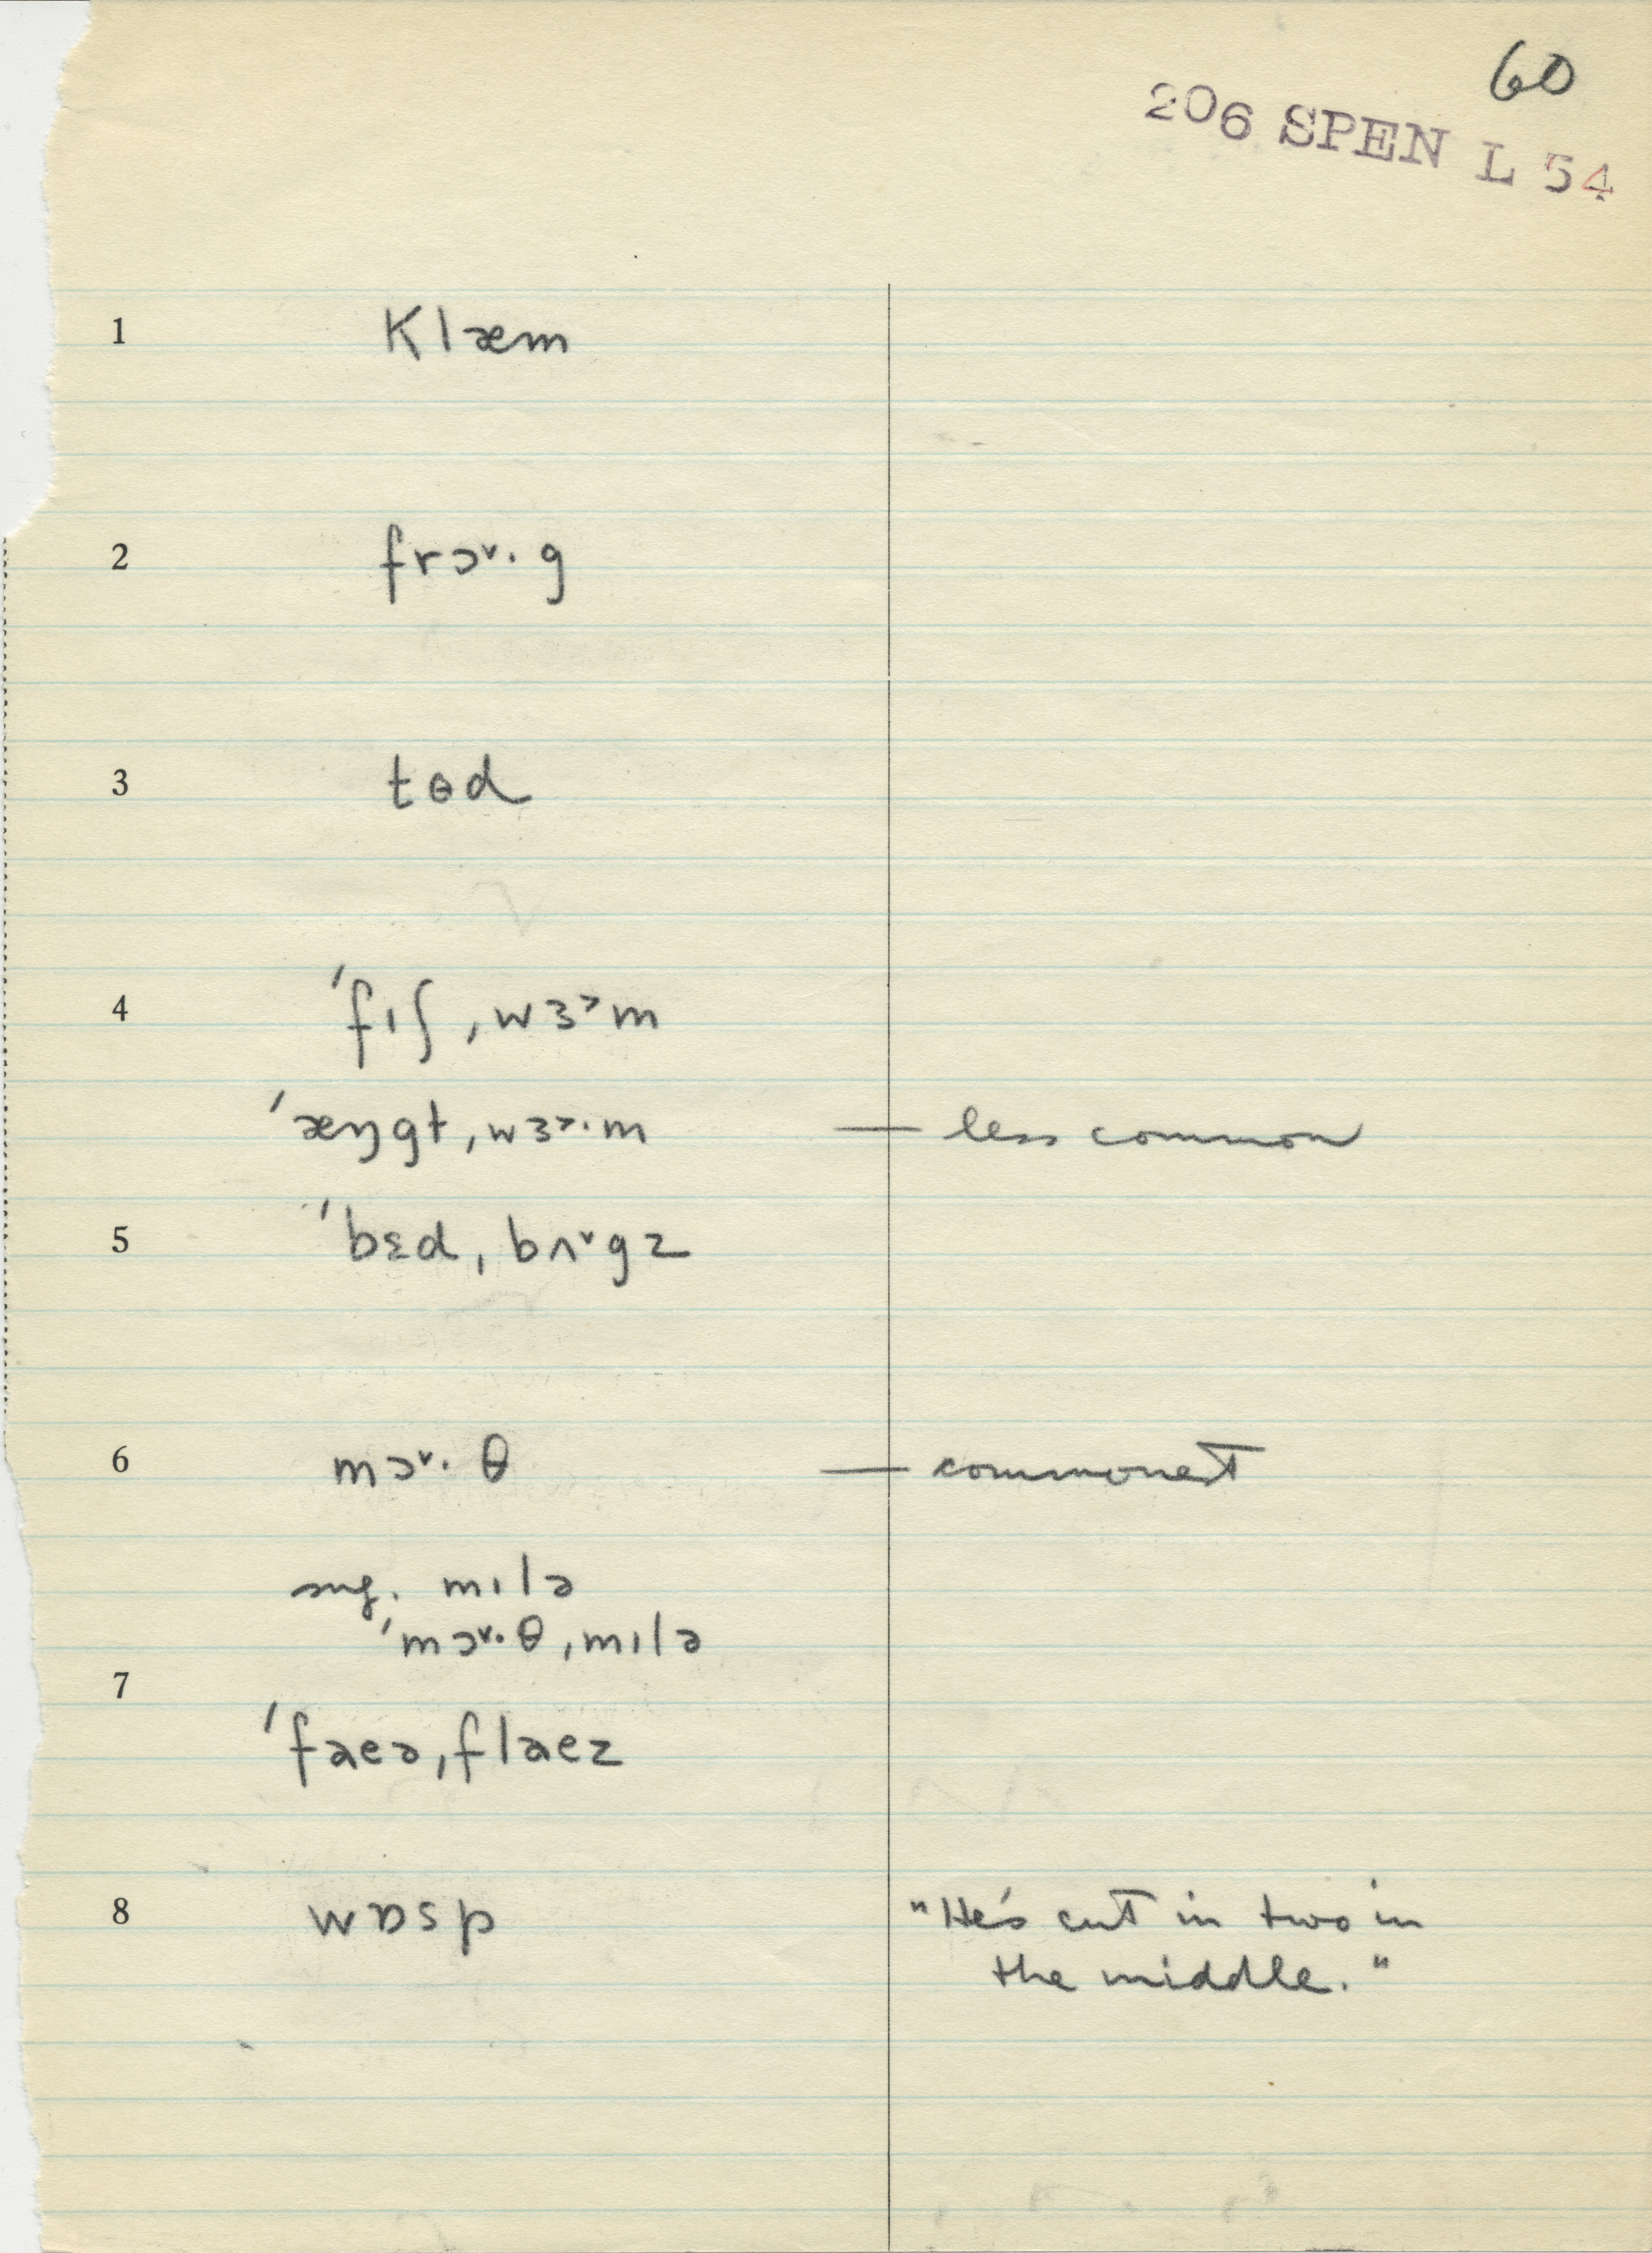 60
206 SPEN L 54
1 klæm
2 frɔˇ· g
3 tɵd
4 ˈfɪʃ ˌwɜ˃m
ˈæŋgɫ ˌwɜ˃·m — less common
5 ˈbɛd ˌbʌˇgz
6 mɔˇ· θ — commonest
sug. mɪlə
ˈmɔˇ·θ ˌmɪlə
7
ˈfaeə ˌflaez
8 wɒsp "He's cut in two in
the middle."